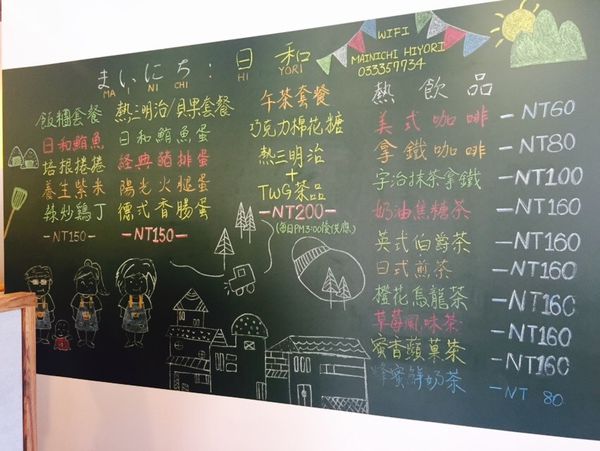 まいにち:日和
MAINICHI HIYORI
WIFI
MAINICHI HIYORI
033357734
飯糰套餐
日和鮪魚
培根捲捲
養生紫米
辣炒鶏丁
-NT150-
熱三明治/貝果套餐
日和鮪魚蛋
經典豬排蛋
陽光火腿蛋
德式香腸蛋
-NT150-
午茶套餐
巧克力棉花糖
熱三明治
+
TWG茶品
-NT200-
熱飲品
美式咖啡 -NT60
拿鐵咖啡 -NT80
宇治抹茶拿鐵 -NT100
奶油焦糖茶 -NT160
英式伯爵茶 -NT160
日式煎茶 -NT160
橙花烏龍茶 -NT160
草莓風味茶 -NT160
蜜香蘋菓茶 -NT160
蜂蜜鮮奶茶 -NT 80